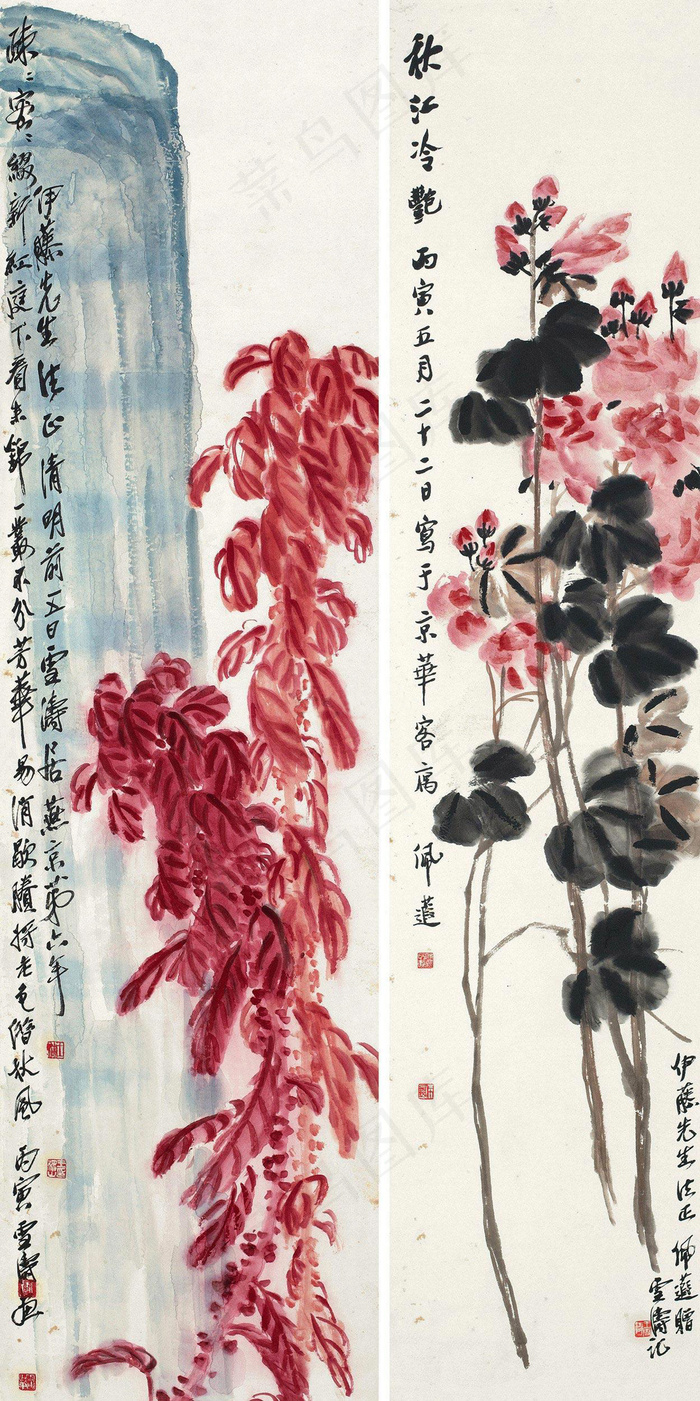 疎〻密〻缀新紅庭下看朱錦一叢不分芳華易消歇賸將老色借秋風 丙寅雪濤畫
伊藤先生法正清明前五日雪濤居燕京第六年
秋江冷艷 丙寅五月二十二日寫于京華客寓 佩蘧
伊藤先生法正 佩蘧贈
雪濤記
菜鸟图库